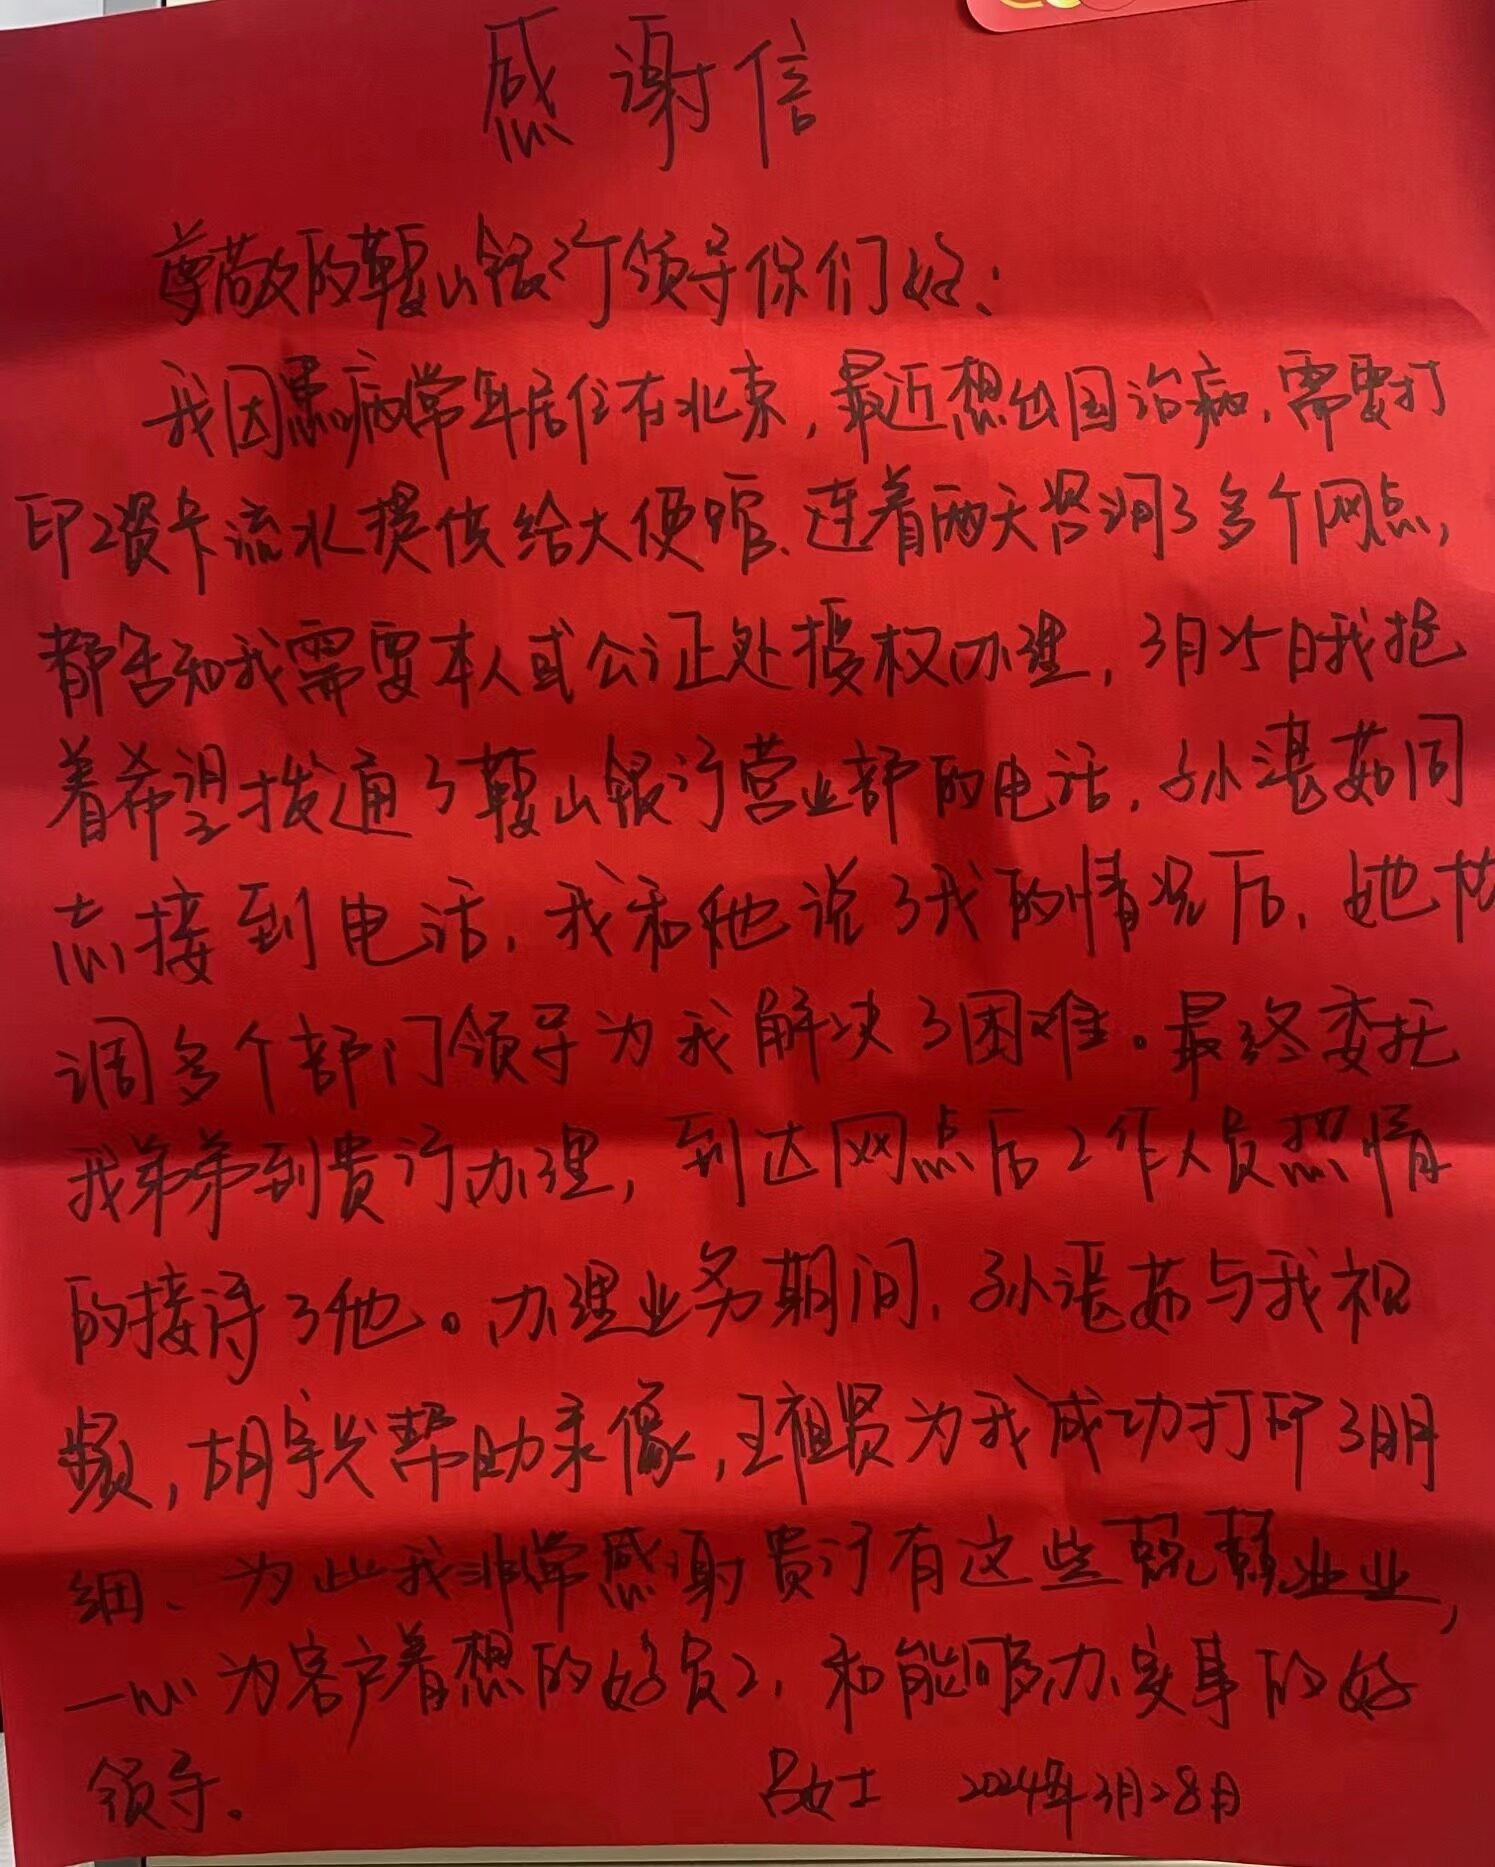 感谢信
尊敬的鞍山银行领导你们好：
我因患病常年居住在北京，最近想出国治病，需要打
印工资卡流水提供给大使馆、连着两天咨询了多个网点，
都告知我需要本人或公证处授权办理，3月25日我抱
着希望拨通了鞍山银行营业部的电话，孙湛茹同
志接到电话，我和他说了我的情况后，她协
调多个部门领导为我解决了困难。最终委托
我弟弟到贵行办理，到达网点后工作人员热情
的接待了他。办理业务期间，孙湛茹与我视
频，胡 帮助录像，王祖贤为我成功打印了明
细、为此我非常感谢贵行有这些兢兢业业，
一心为客户着想的好员工，和能够办实事的好
领导。 吕女士 2024年3月28日